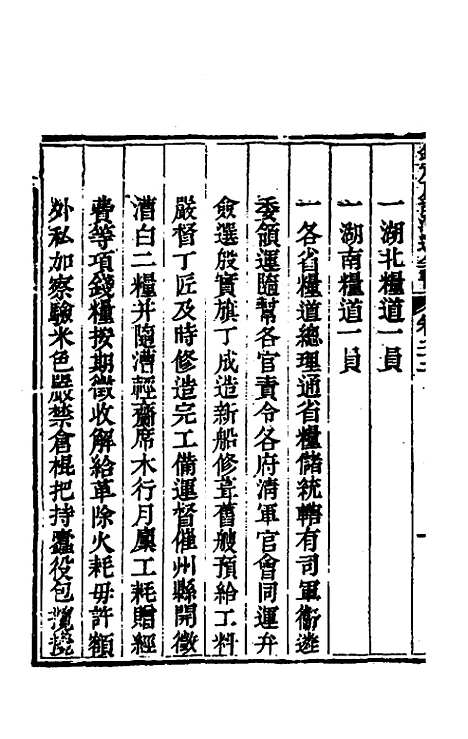 一湖北糧道一員
一湖南糧道一員
一各省糧道總理通省糧儲統轄有司軍衛遴
委領運隨幫各官責令各府清軍官會同運弁
僉選殷實旗丁成造新船修葺舊艘預給工料
嚴督丁匠及時修造完工備運督催州縣開徵
漕白二糧并隨漕輕齎席木行月廩工耗贈經
費等項錢糧按期徵收解給革除火耗毋許額
外私加察驗米色嚴禁倉棍把持蠹役包攬